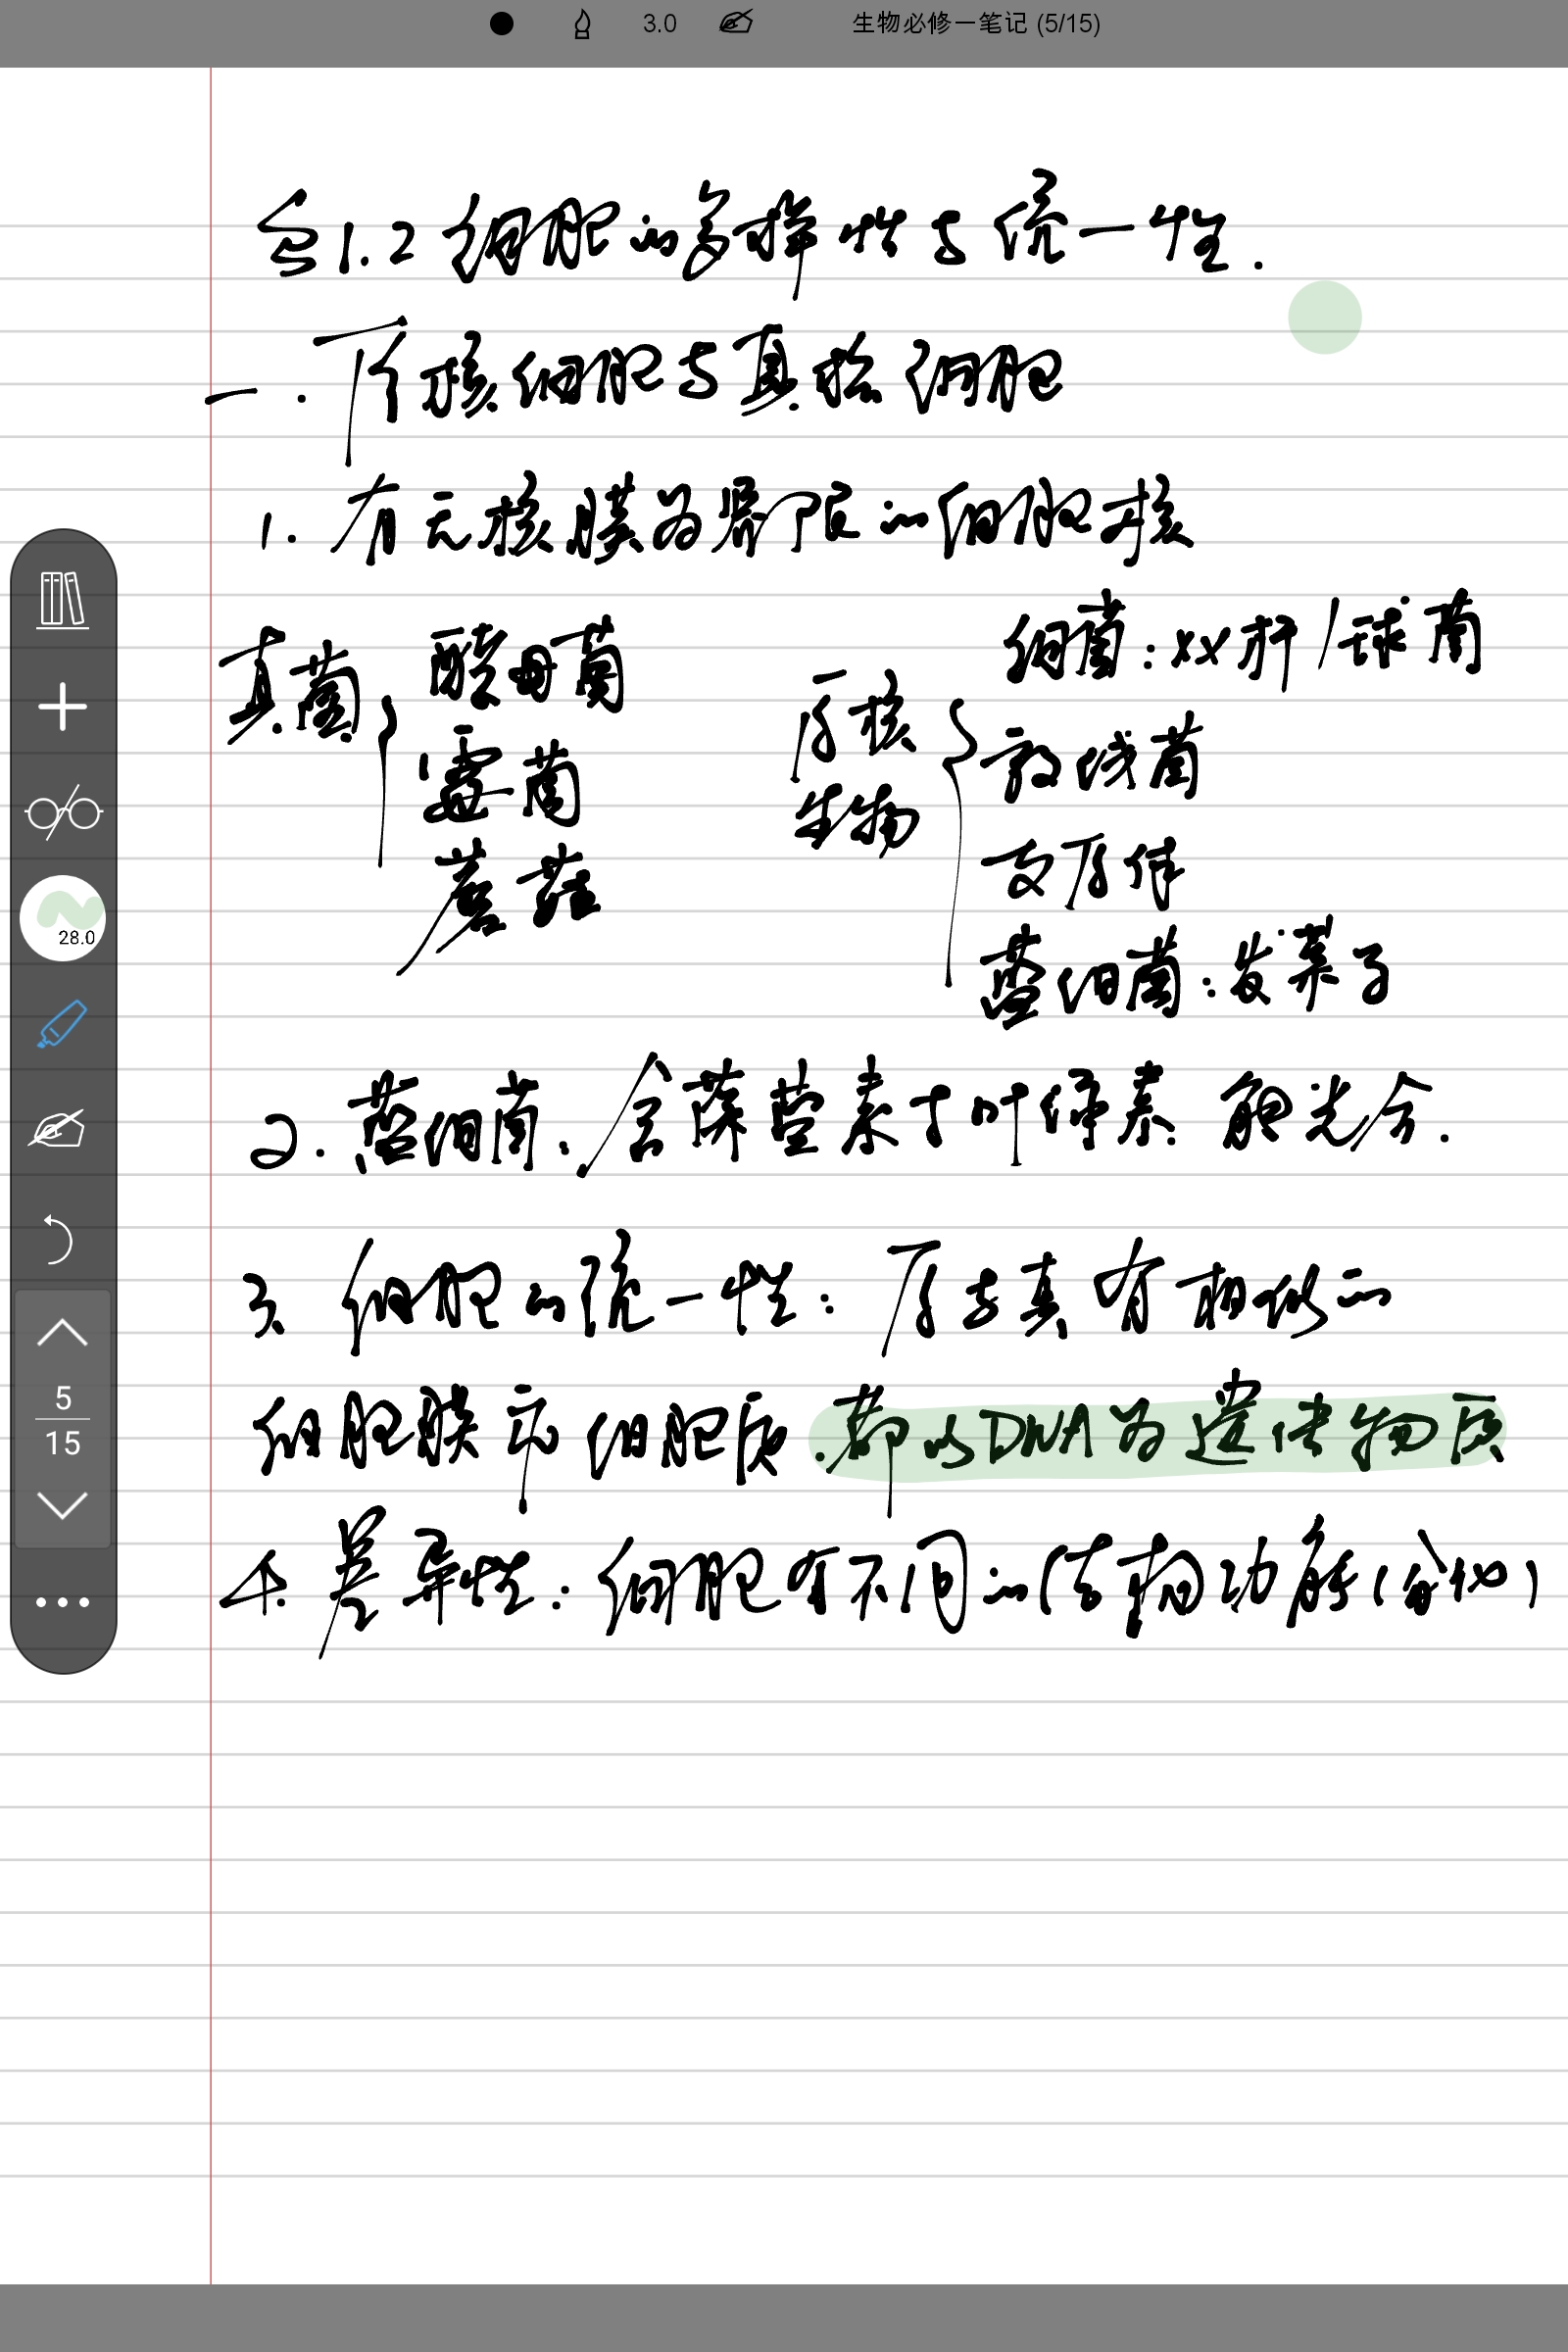 3.0 生物必修一笔记 (5/15)
1.2 细胞的多样性与统一性.
一. 原核细胞与真核细胞
1. 有无核膜为界限的细胞核
真菌 { 酵母菌
霉菌
蘑菇
原核生物 { 细菌:xx杆/球菌
放线菌
支原体
蓝细菌:发菜子
2. 蓝细菌:含藻蓝素于叶绿素 能光合.
3. 细胞的统一性:原与真有相似的
细胞膜和细胞质.都以DNA为遗传物质
4. 差异性:细胞有不同的(结构功能(分化)
28.0
5
15